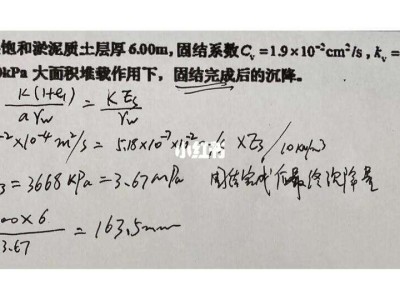 饱和淤泥质土层厚6.00m,固结系数Cᵥ=1.9×10⁻²cm²/s,kᵥ=
0kPa 大面积堆载作用下,固结完成后的沉降。
K(1+e₁)/aγw = KEs/γw
⁻²×10⁻⁴m²/s = 5.18×10⁻⁷×10⁻² ×Es/10kN/m³
小红书
=3668kPa=3.67mPa 固结完成后最终沉降量
00×6/3.67 = 163.5mm